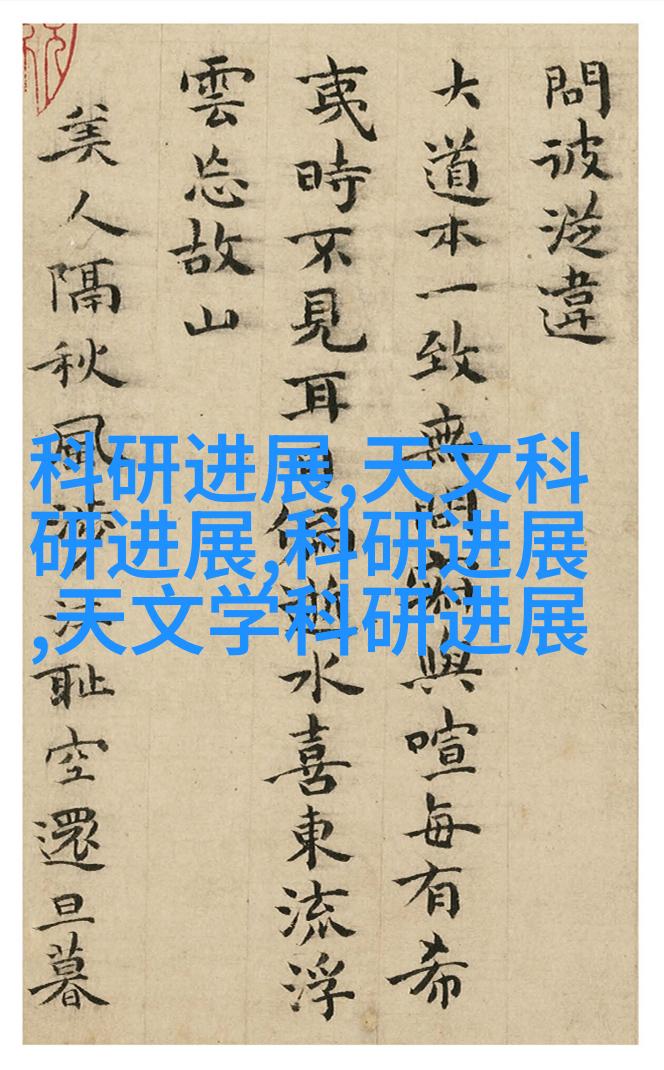 問彼從違
大道本一致無問寂與喧每有希
夷時不見耳目偏逝水喜東流浮
雲忘故山
美人隔秋風涉江耻空還旦暮
科研进展,天文科
研进展,科研进展
,天文学科研进展